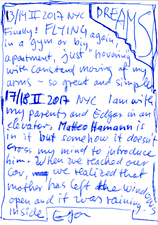 13/14 II 2017 NYC
DREAMS
Finally! FLYING again,
in a gym or big
apartment, just hovering
with constant moving of my
arms - so great and simple
17/18 II 2017 NYC I am with
my parents and Edgar in an
elevator. Matteo Hamann is
in it but somehow it doesn't
cross my mind to introduce
him. When we reached our
car, we realized that
mother has left the windows
open and it was raining
inside.